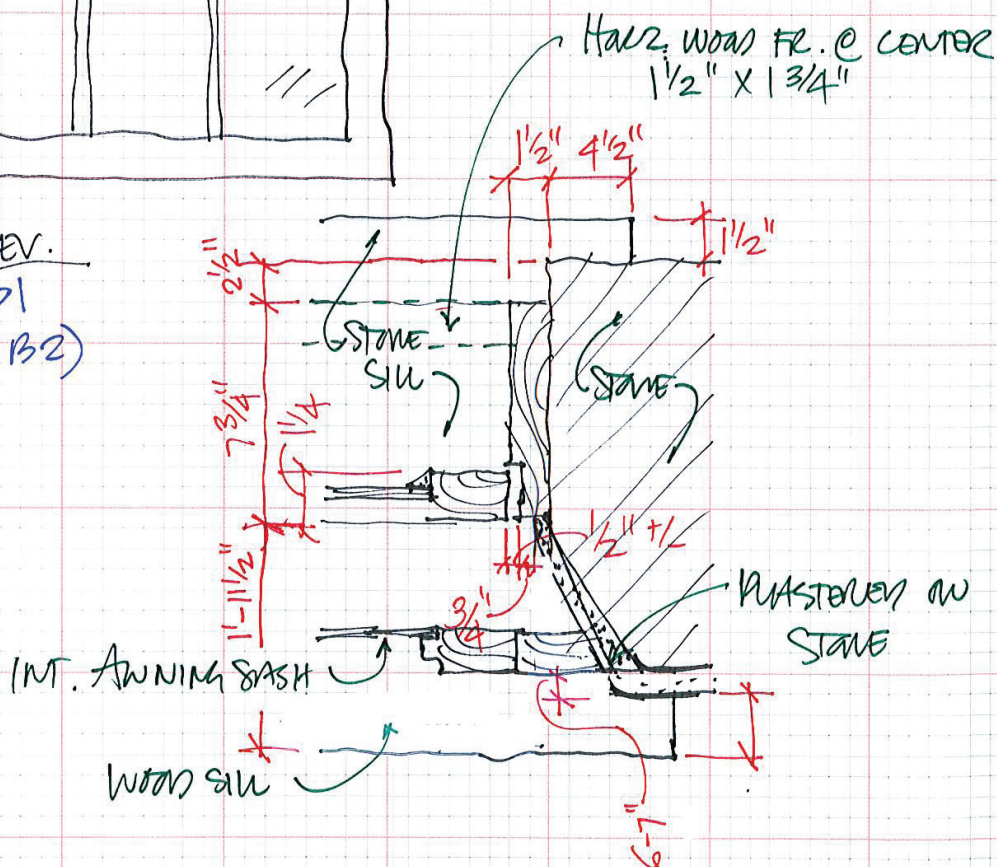 HORZ. WOOD FR. @ CENTER
1 1/2" X 1 3/4"
1 1/2"
4 1/2"
1 1/2"
EV.
B2)
2 1/2"
STONE
SILL
STONE
7 3/4"
1 1/4
1/2" +/-
1'-11 1/2"
3/4"
PLASTERED ON
STONE
INT. AWNING SASH
WOOD SILL
6-7"